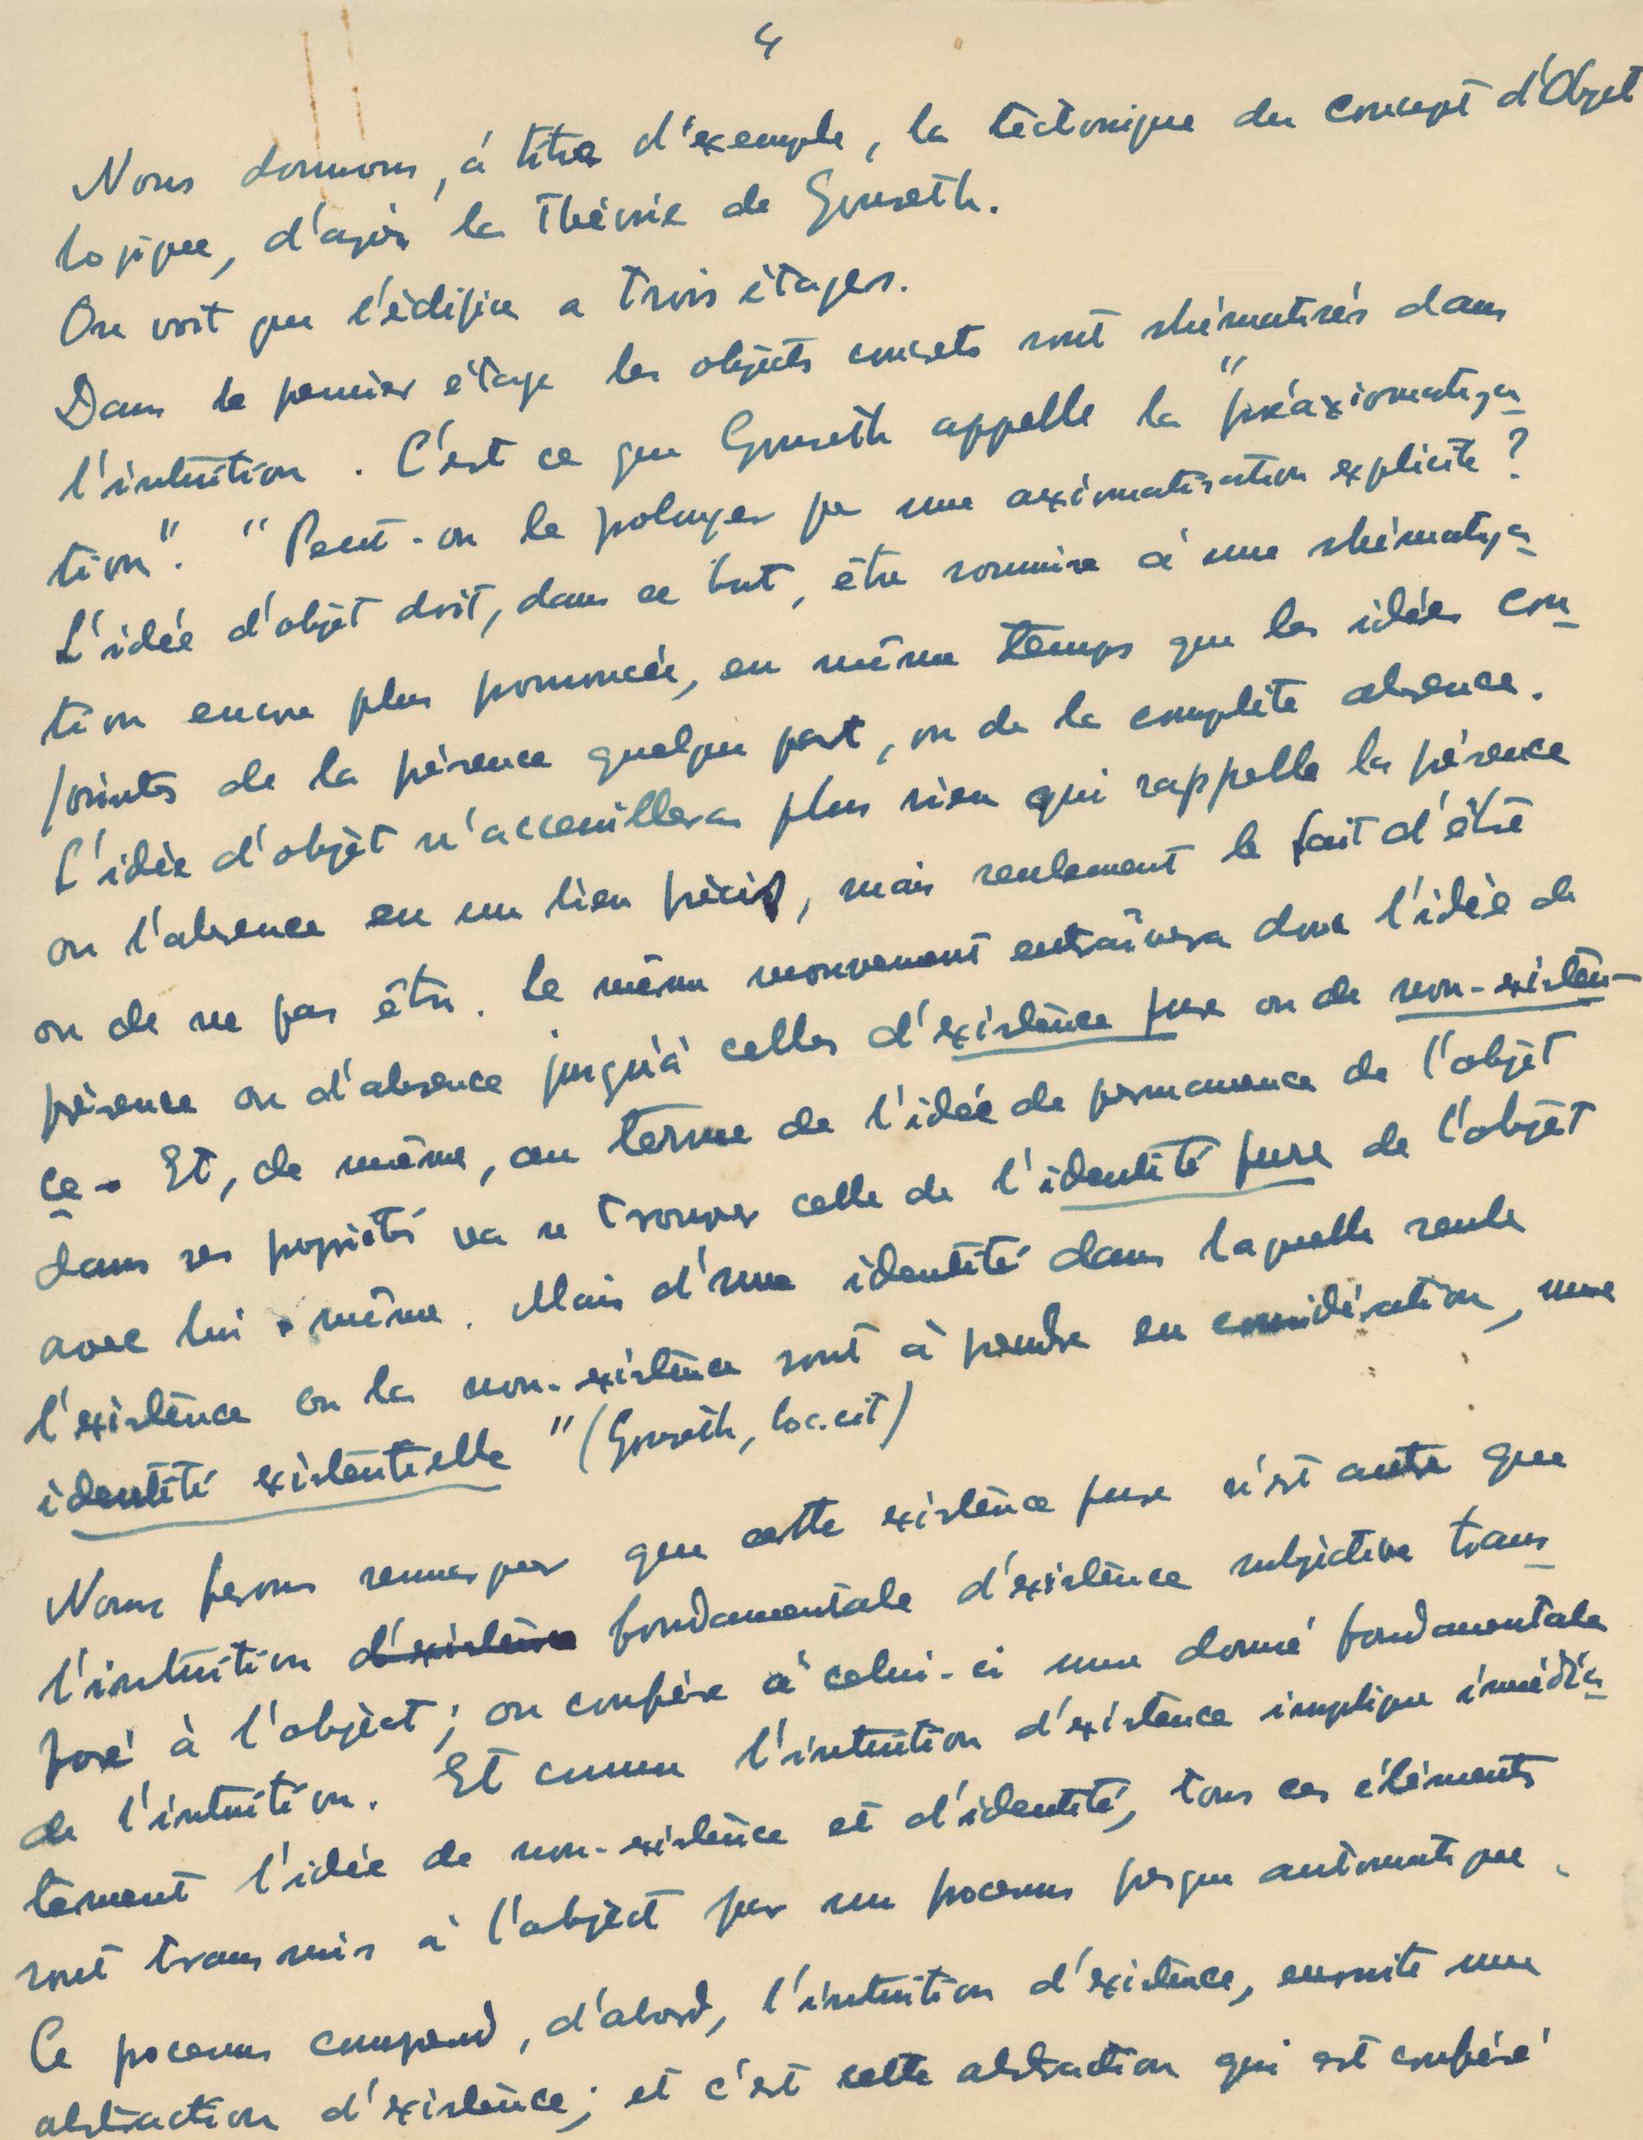 4
Nous donnons, à titre d'exemple, la téctonique du concept d'Objet
logique, d'après la théorie de Gonseth.
On voit que l'édifice a trois étages.
Dans le premier étage les objets concrets sont shématisés dans
l'intuition. C'est ce que Gonseth appelle la "préaxiomatisa-
tion". "Peut-on le prolonger par une axiomatisation explicite?
L'idée d'objet doit, dans ce but, être soumise à une shématisa-
tion encore plus prononcée, en même temps que les idées con-
jointes de la présence quelque part, ou de la complète absence.
L'idée d'objet n'acceuillera plus rien qui rappelle la présence
ou l'absence en un lieu précis, mais seulement le fait d'être
ou de ne pas être. Le même mouvement entraînera donc l'idée de
présence ou d'absence jusqu'à celles d'existence pure ou de non-existen-
ce- Et, de même, au terme de l'idée de permanence de l'objet
dans ses propriétés va se trouver celle de l'identité pure de l'objet
avec lui-même. Mais d'une identité dans laquelle seule
l'existence ou la non-existence sont à prendre en considération, une
identité existentielle" (Gonseth, loc. cit)
Nous ferons remarquer que cette existence pure n'est autre que
l'intuition d'existence fondamentale d'existence subjective trans-
posé à l'objèct; on confère à celui-ci une donné fondamentale
de l'intuition. Et comme l'intuition d'existence implique immédia-
tement l'idée de non-existence et d'identité, tous ces éléments
sont transmis à l'objèct par un processus presque automatique.
Ce processus comprend, d'abord, l'intuition d'existence, ensuite une
abstraction d'existence; et c'est cette abstraction qui est conféré